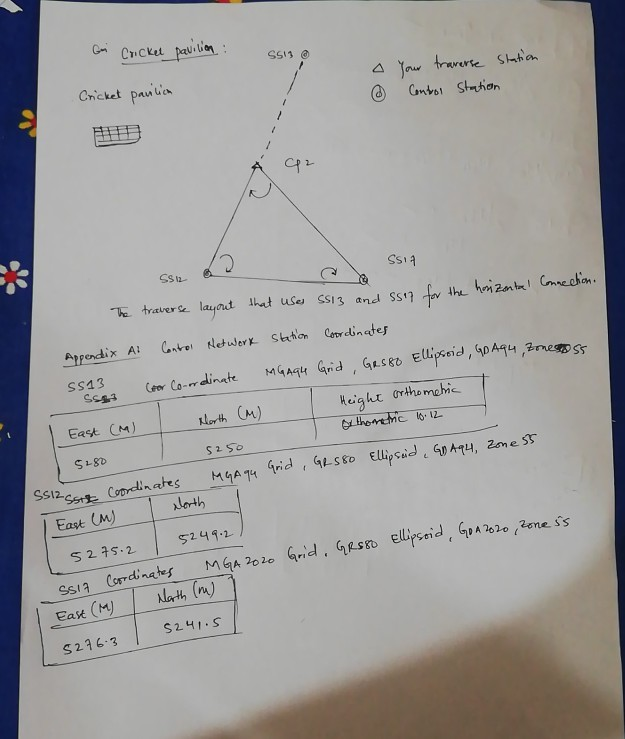 Cricket pavilion :
SS13
Your traverse station
Control Station
Cricket pavilion
CP2
SS17
SS12
The traverse layout that uses SS13 and SS17 for the horizontal Connection.
Appendix A: Control Network Station Coordinates
SS13 Co-ordinate MGA94 Grid, GRS80 Ellipsoid, GDA94, Zone 55
East (M) North (M) Height orthometric
5280 5250 Orthometric 10.12
SS12 Coordinates MGA94 Grid, GRS80 Ellipsoid, GDA94, Zone 55
East (M) North
5275.2 5249.2
SS17 Coordinates MGA2020 Grid, GRS80 Ellipsoid, GDA2020, Zone 55
East (M) North (m)
5276.3 5241.5